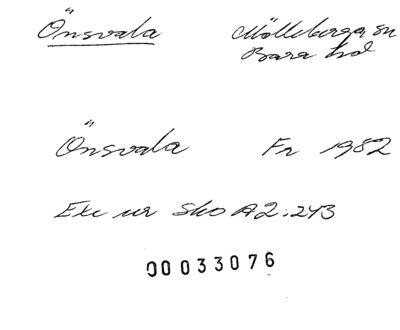 Önsvala Mölleberga sn
Bara hd
Önsvala Fr 1982
Exc ur Sko A2:243
00033076